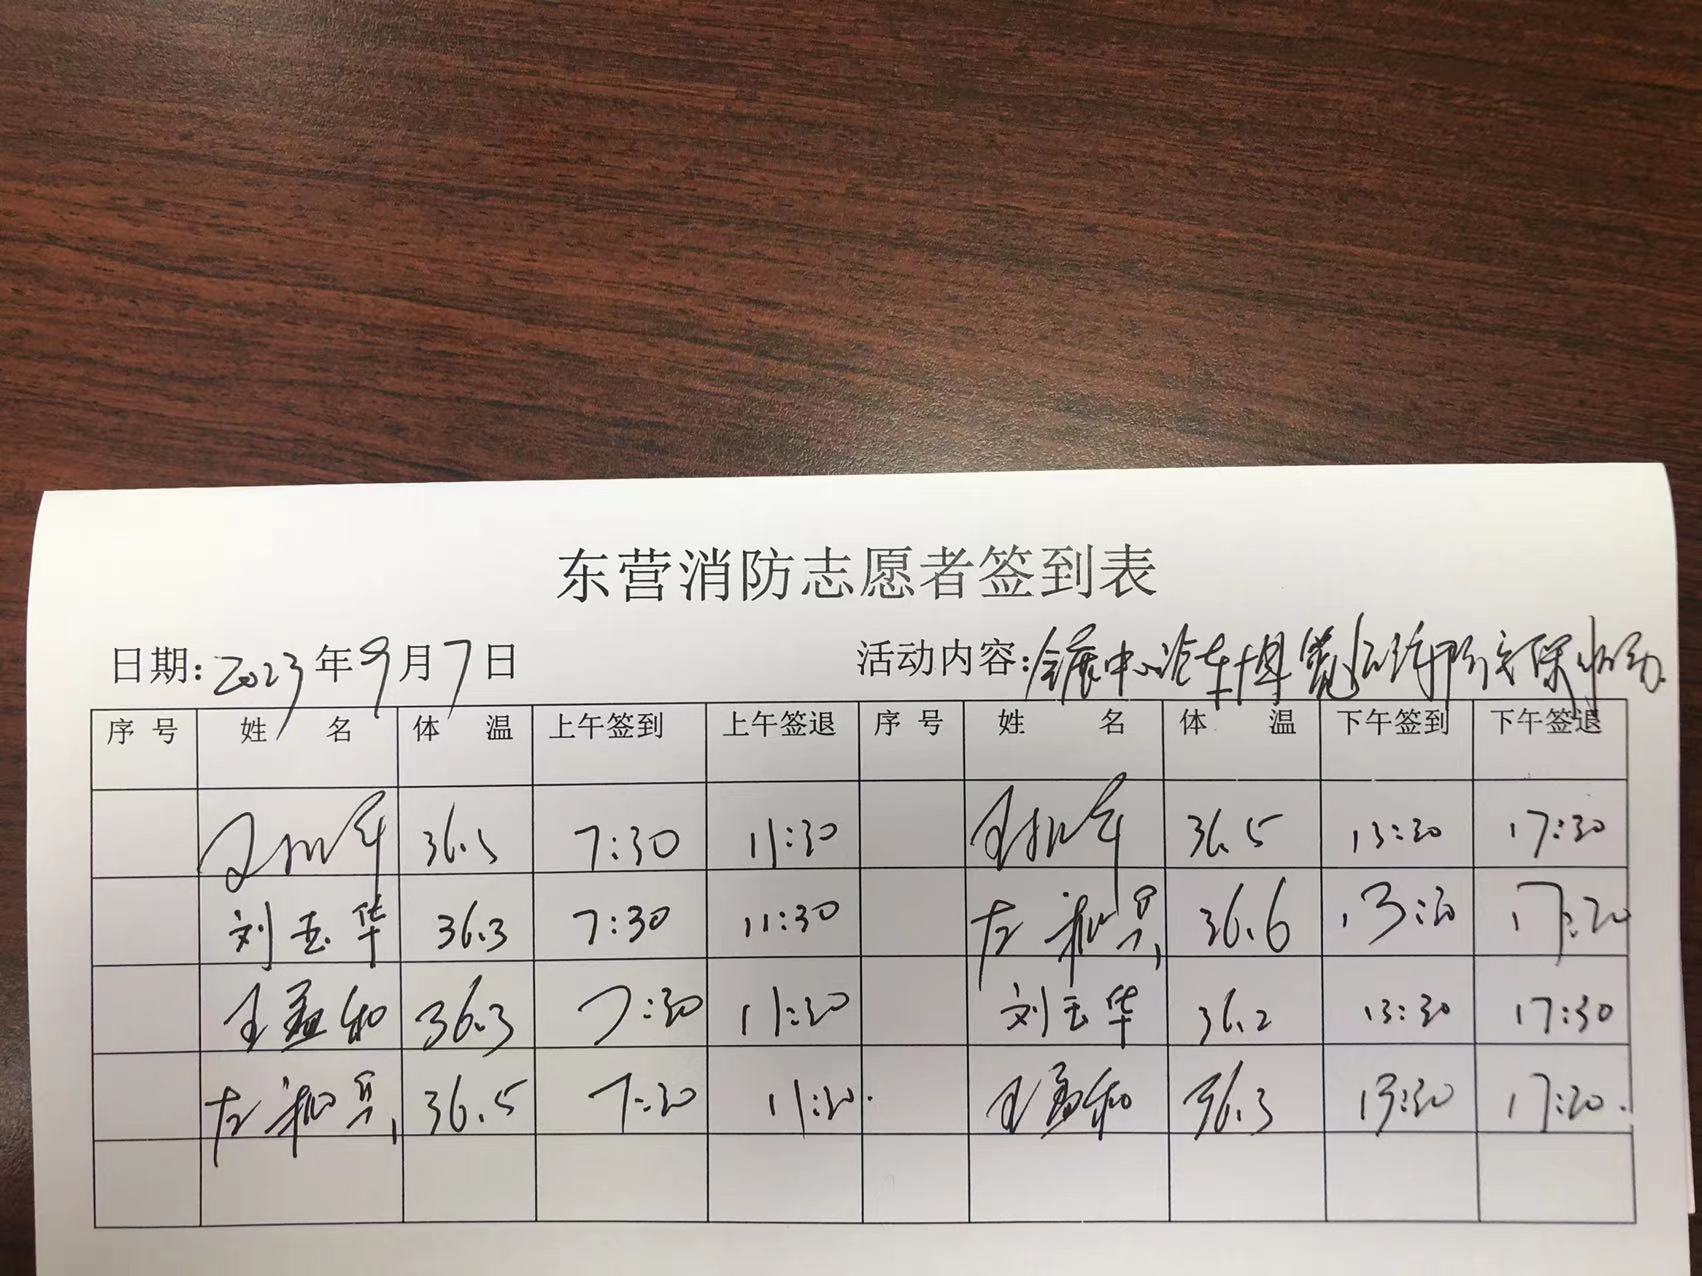 东营消防志愿者签到表
日期: 2023年9月7日 活动内容: 会展中心汽车博览
序号 姓名 体温 上午签到 上午签退 序号 姓名 体温 下午签到 下午签退
36.5 7:30 11:30 36.5 13:30 17:30
刘玉华 36.3 7:30 11:30 左 36.6 13:30 17:30
王孟和 36.3 7:30 11:30 刘玉华 36.2 13:30 17:30
左 36.5 7:30 11:30. 王孟和 36.3 13:30 17:30.